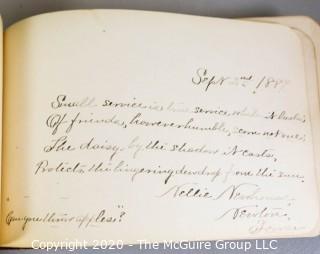 Sept 2nd 1889
Small service is true service while it lasts
Of friends, however humble, scorn not one;
The daisy, by the shadow it casts,
Protects the lingering dewdrop from the sun.
Nellie
Newton,
"
apples"?
Copyright 2020 - The McGuire Group LLC